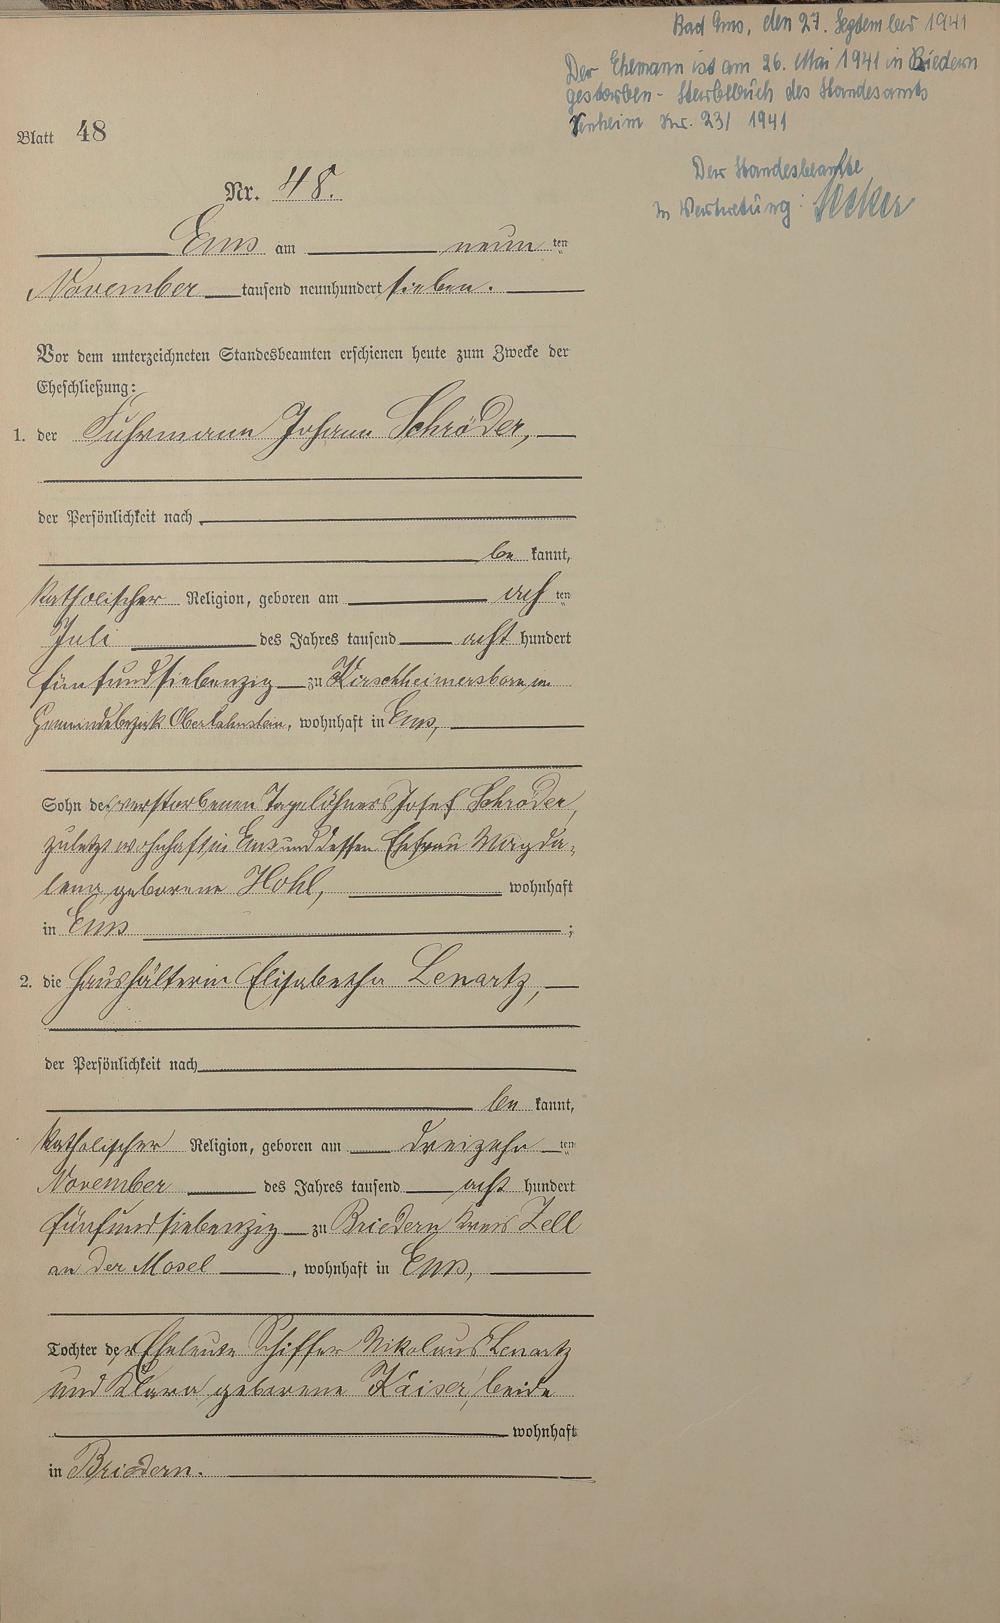 Bad Ems, den 27. September 1941
Der Ehemann ist am 26. Mai 1941 in Briedern
gestorben - Sterbebuch des Standesamts
Senheim Nr. 23/1941
Der Standesbeamte
In Vertretung:
Blatt 48
Nr. 48.
Ems am neunten
November tausend neunhundert sieben.
Vor dem unterzeichneten Standesbeamten erschienen heute zum Zwecke der
Eheschließung:
1. der Fuhrmann Johann Schröder,
der Persönlichkeit nach
be kannt,
katholischer Religion, geboren am achten
Juli des Jahres tausend acht hundert
fünfundsiebenzig zu Kirschheimersborn im
Gemeindebezirk Oberlahnstein, wohnhaft in Ems,
Sohn des verstorbenen Tagelöhners Josef Schröder,
zuletzt wohnhaft in Ems und dessen Ehefrau Magda-
lena geborene Hohl, wohnhaft
in Ems ;
2. die Haushälterin Elisabetha Lenartz,
der Persönlichkeit nach
be kannt,
katholischer Religion, geboren am dreizehnten
November des Jahres tausend acht hundert
fünfundsiebenzig zu Briedern Kreis Zell
an der Mosel, wohnhaft in Ems,
Tochter der Eheleute Schiffer Nikolaus Lenartz
und Klara geborene Kaiser, beide
wohnhaft
in Briedern.